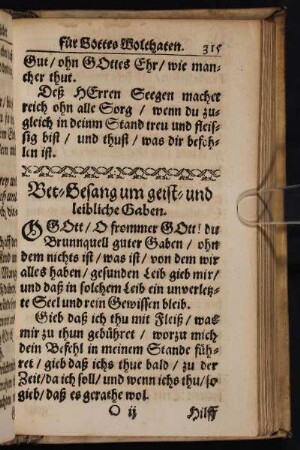 Für Gottes Wolthaten. 315
Gut / ohn GOttes Ehr / wie man-
cher thut.
Deß HErren Seegen machet
reich ohn alle Sorg / wenn du zu-
gleich in deinm Stand treu und fleis-
sig bist / und thust / was dir befoh-
len ist.
Bet-Gesang um geist- und
leibliche Gaben.
O GOtt / O frommer GOtt! du
Brunnquell guter Gaben / ohn
dem nichts ist / was ist / von dem wir
alles haben / gesunden Leib gieb mir /
und daß in solchem Leib ein unverletz-
te Seel und rein Gewissen bleib.
Gieb daß ich thu mit Fleiß / was
mir zu thun gebühret / worzu mich
dein Befehl in meinem Stande füh-
ret / gieb daß ichs thue bald / zu der
Zeit / da ich soll / und wenn ichs thu / so
gieb / daß es gerathe wol.
O ij Hilff